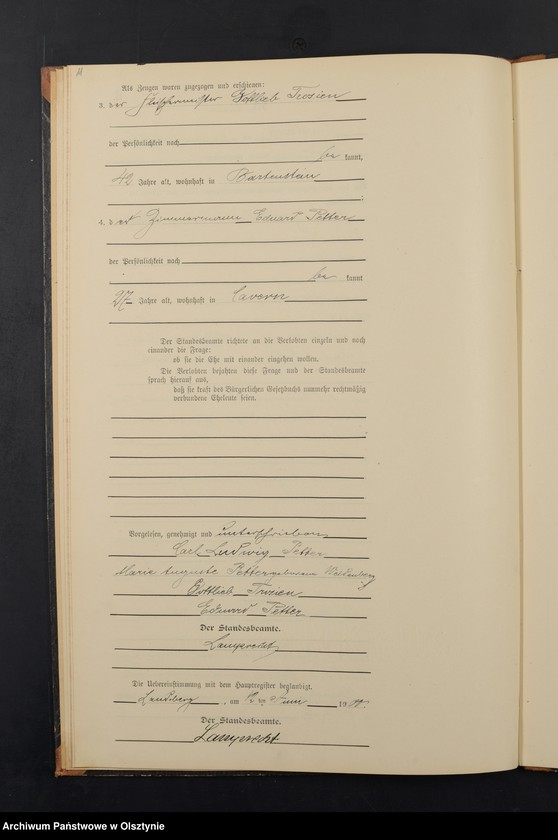 Als Zeugen waren zugezogen und erschienen:
3. der Fleischermeister Gottlieb Trosien
der Persönlichkeit nach
be kannt,
42 Jahre alt, wohnhaft in Bartenstein
;
4. der Zimmermann Eduard Petter
der Persönlichkeit nach
be kannt
27 Jahre alt, wohnhaft in Cavern
Der Standesbeamte richtete an die Verlobten einzeln und nach
einander die Frage:
ob sie die Ehe mit einander eingehen wollen.
Die Verlobten bejahten diese Frage und der Standesbeamte
sprach hierauf aus,
daß sie kraft des Bürgerlichen Gesetzbuchs nunmehr rechtmäßig
verbundene Eheleute seien.
Vorgelesen, genehmigt und unterschrieben
Carl Ludwig Petter
Marie Auguste Petter geborene
Gottlieb Trosien
Eduard Petter
Der Standesbeamte.
Lamprecht
Die Uebereinstimmung mit dem Hauptregister beglaubigt.
Landsberg, am ten 19
Der Standesbeamte.
Lamprecht
Archiwum Państwowe w Olsztynie